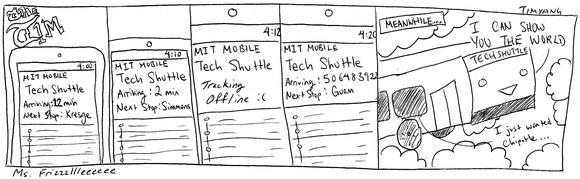 The
MID
4:00
MIT MOBILE
Tech Shuttle
Arriving: 12 min
Next Stop: Kresge
4:10
MIT MOBILE
Tech Shuttle
Arriving: 2 min
Next Stop: Simmons
4:12
MIT MOBILE
Tech Shuttle
Tracking
Offline :(
4:20
MIT MOBILE
Tech Shuttle
Arriving: 50648392
Next Stop: Guam
TIM YANG
MEANWHILE...
I CAN SHOW
YOU THE WORLD
TECH SHUTTLE
I just wanted
Chipotle...
Ms. Frizzllleeeeee